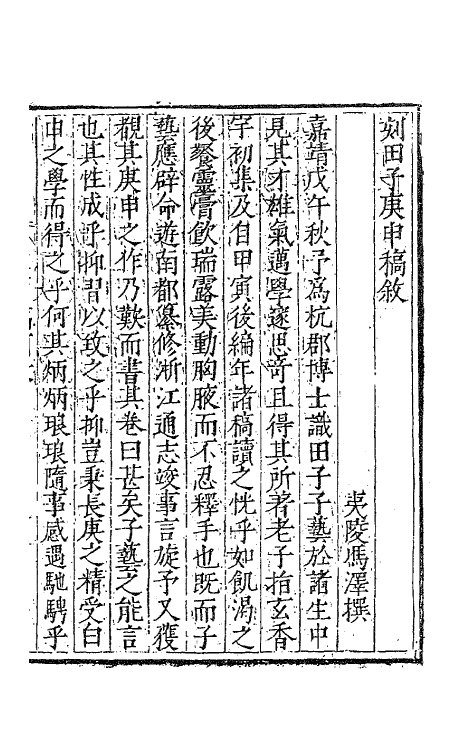 刻田子庚申稿敘
夷陵馮澤撰
嘉靖戊午秋予爲杭郡博士識田子子藝於諸生中
見其才雄氣邁學邃思竒且得其所著老子指玄香
宇初集及自甲寅後編年諸稿讀之恍乎如飢渴之
後餐靈膏飲瑞露美動胸腋而不忍釋手也既而子
藝應辟命遊南都纂修浙江通志竣事言旋予又獲
觀其庚申之作乃歎而書其卷曰甚矣子藝之能言
也其性成乎抑習以致之乎抑豈秉長庚之精受白
申之學而得之乎何其炳炳琅琅隨事感遇馳騁乎